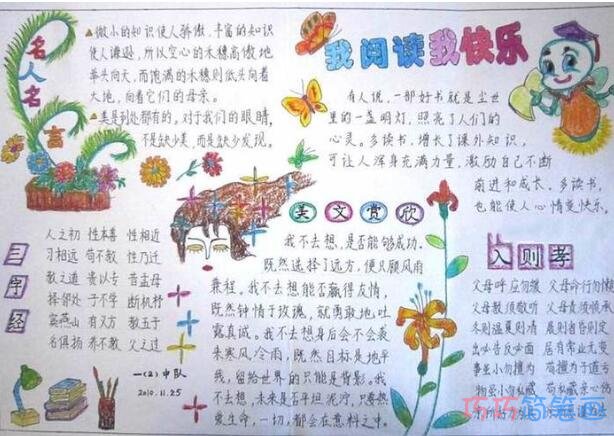 名人名言
▲微小的知识使人骄傲,丰富的知识
使人谦逊,所以空心的禾穗高傲地
举头向天,而饱满的禾穗则低头向着
大地,向着它们的母亲。
▲美是到处都有的。对于我们的眼睛,
不是缺少美,而是缺少发现。
我阅读我快乐
有人说,一部好书就是尘世
里的一盏明灯,照亮了人们的
心灵。多读书,增长了课外知识,
可让人浑身充满力量,激励自己不断
前进和成长。多读书,
也能使人心情变快乐。
三字经
人之初 性本善 性相近
习相远 苟不教 性乃迁
教之道 贵以专 昔孟母
择邻处 子不学 断机杼
窦燕山 有义方 教五子
名俱扬 养不教 父之过
一(2)中队
2010.11.25
美文赏欣
我不去想,是否能够成功,
既然选择了远方,便只顾风雨
兼程。我不去想能否赢得友情,
既然钟情于玫瑰,就勇敢地吐
露真诚。我不去想身后会不会袭
来寒风冷雨,既然目标是地平
线,留给世界的只能是背影。我不
去想,未来是否平坦泥泞,只要热
爱生命,一切,都会在意料之中。
入则孝
父母呼 应勿缓 父母命 行勿懒
父母教 须敬听 父母责 须顺承
冬则温 夏则清 晨则省 昏则定
出必告 反必面 居有常 业无变
事虽小 勿擅为 苟擅为 子道亏
物虽小 勿私藏 苟私藏 亲心伤
巧巧简笔画